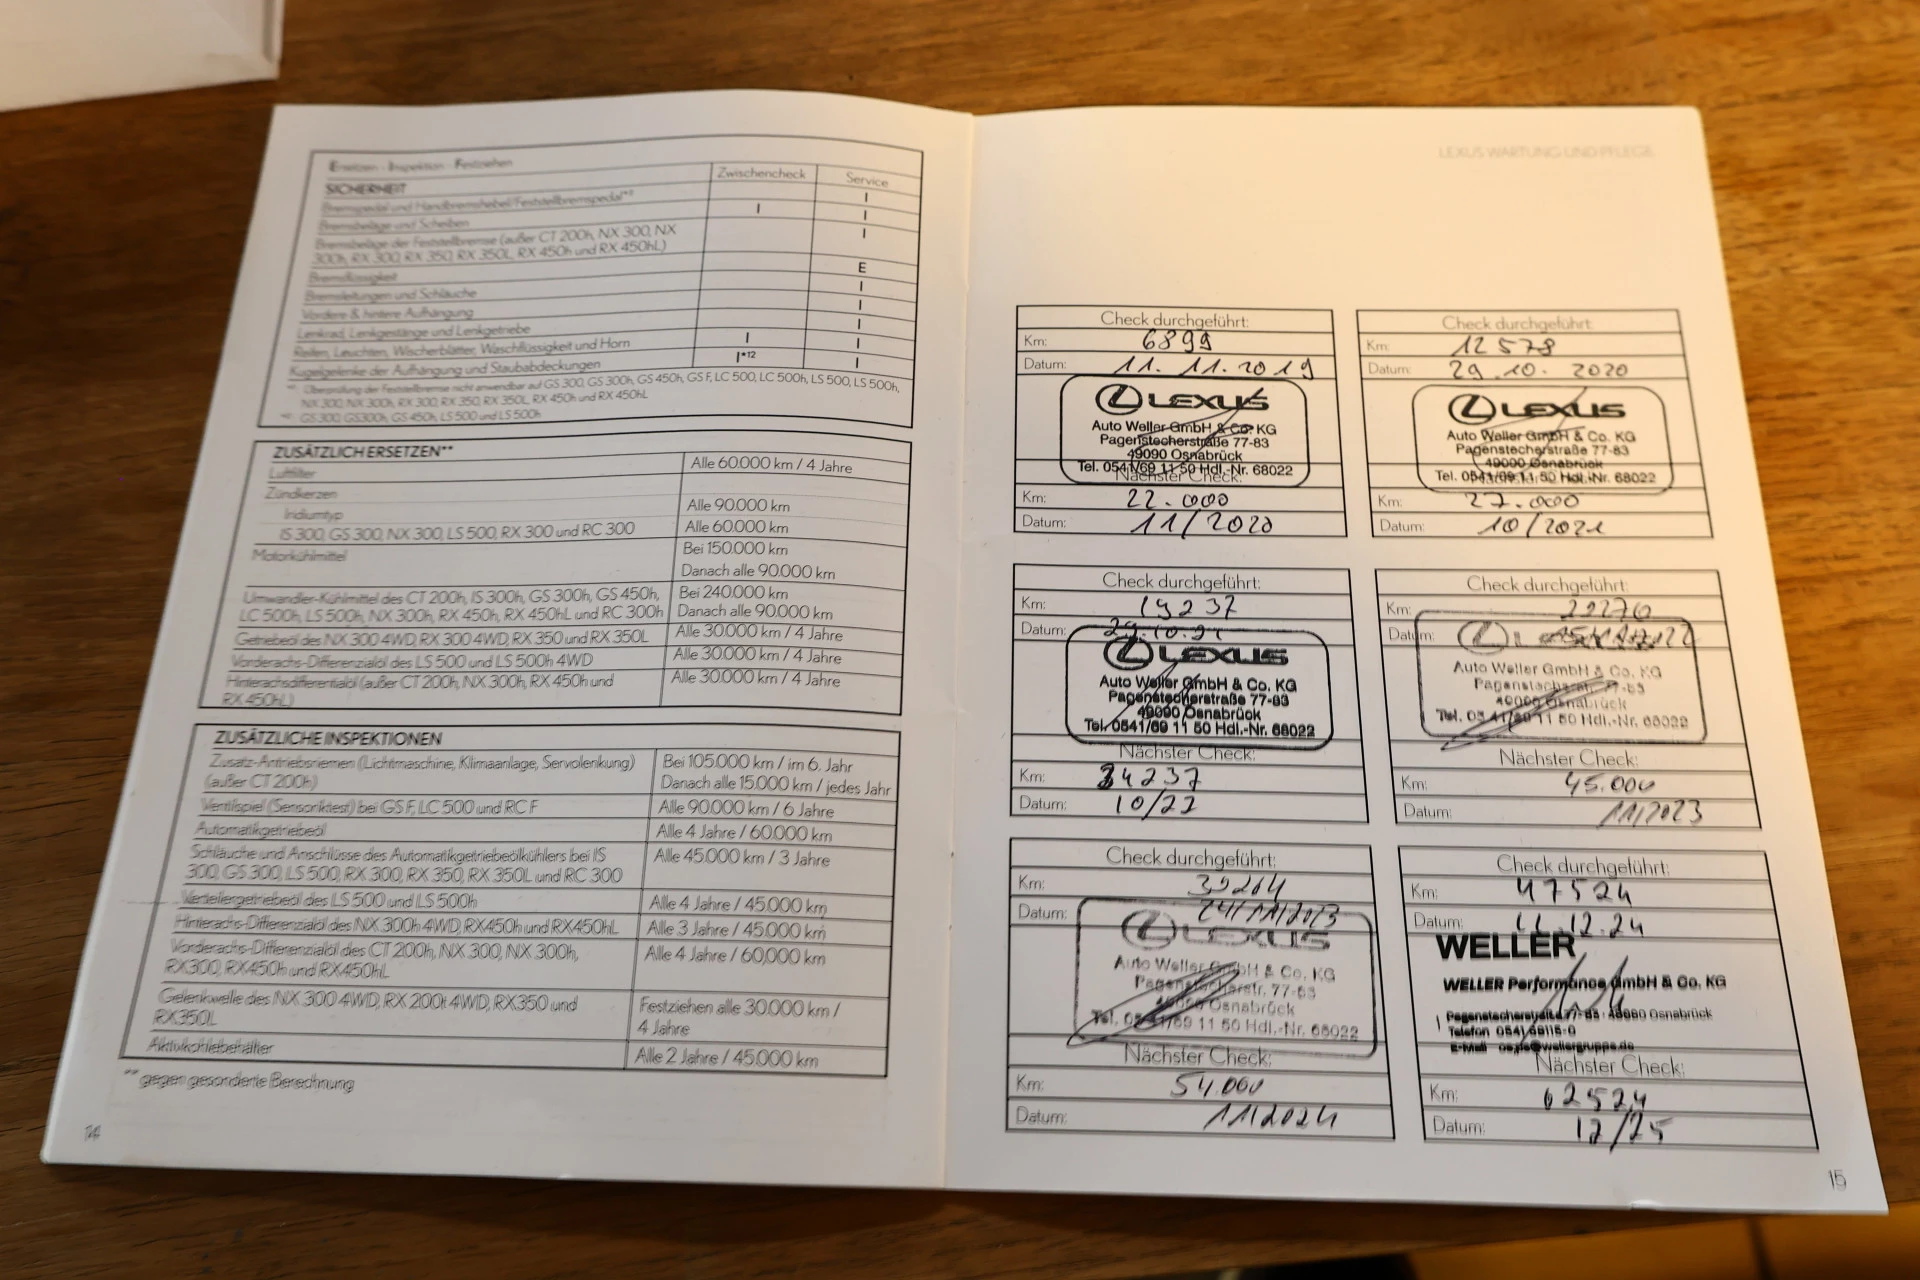 Ersetzen - Inspektion - Festziehen
Zwischencheck
Service
SICHERHEIT
Bremspedal und Handbremshebel/Feststellbremspedal*¹
I
Bremsbeläge und Scheiben
I
I
Bremsbeläge der Feststellbremse (außer CT 200h, NX 300, NX
300h, RX 300, RX 350, RX 350L, RX 450h und RX 450hL)
I
Bremsflüssigkeit
E
Bremsleitungen und Schläuche
I
Vordere & hintere Aufhängung
I
Lenkrad, Lenkgestänge und Lenkgetriebe
I
Reifen, Leuchten, Wischerblätter, Waschflüssigkeit und Horn
I
I
Kugelgelenke der Aufhängung und Staubabdeckungen
I*¹²
I
Überprüfung der Feststellbremse nicht anwendbar auf GS 300, GS 300h, GS 450h, GS F, LC 500, LC 500h, LS 500, LS 500h,
NX 300, NX 300h, RX 300, RX 350, RX 350L, RX 450h und RX 450hL
GS 300, GS300h, GS 450h, LS 500 und LS 500h
ZUSÄTZLICH ERSETZEN**
Luftfilter
Alle 60.000 km / 4 Jahre
Zündkerzen
Iridiumtyp
Alle 90.000 km
IS 300, GS 300, NX 300, LS 500, RX 300 und RC 300
Alle 60.000 km
Motorkühlmittel
Bei 150.000 km
Danach alle 90.000 km
Umwandler-Kühlmittel des CT 200h, IS 300h, GS 300h, GS 450h,
LC 500h, LS 500h, NX 300h, RX 450h, RX 450hL und RC 300h
Bei 240.000 km
Danach alle 90.000 km
Getriebeöl des NX 300 4WD, RX 300 4WD, RX 350 und RX 350L
Alle 30.000 km / 4 Jahre
Vorderachs-Differenzialöl des LS 500 und LS 500h 4WD
Alle 30.000 km / 4 Jahre
Hinterachsdifferentialöl (außer CT 200h, NX 300h, RX 450h und
RX 450hL)
Alle 30.000 km / 4 Jahre
ZUSÄTZLICHE INSPEKTIONEN
Zusatz-Antriebsriemen (Lichtmaschine, Klimaanlage, Servolenkung)
(außer CT 200h)
Bei 105.000 km / im 6. Jahr
Danach alle 15.000 km / jedes Jahr
Ventilspiel (Sensoriktest) bei GS F, LC 500 und RC F
Alle 90.000 km / 6 Jahre
Automatikgetriebeöl
Alle 4 Jahre / 60.000 km
Schläuche und Anschlüsse des Automatikgetriebeölkühlers bei IS
300, GS 300, LS 500, RX 300, RX 350, RX 350L und RC 300
Alle 45.000 km / 3 Jahre
Verteilergetriebeöl des LS 500 und LS 500h
Alle 4 Jahre / 45.000 km
Hinterachs-Differenzialöl des NX 300h 4WD, RX450h und RX450hL
Alle 3 Jahre / 45.000 km
Vorderachs-Differenzialöl des CT 200h, NX 300, NX 300h,
RX300, RX450h und RX450hL
Alle 4 Jahre / 60,000 km
Gelenkwelle des NX 300 4WD, RX 200t 4WD, RX350 und
RX350L
Festziehen alle 30.000 km /
4 Jahre
Aktivkohlebehälter
Alle 2 Jahre / 45.000 km
** gegen gesonderte Berechnung
14
LEXUS WARTUNG UND PFLEGE
Check durchgeführt:
Km: 6899
Datum: 11. 11. 2019
LEXUS
Auto Weller GmbH & Co. KG
Pagenstecherstraße 77-83
49090 Osnabrück
Tel. 0541/69 11 50 Hdl.-Nr. 68022
Nächster Check:
Km: 22.000
Datum: 11/2020
Check durchgeführt:
Km: 12578
Datum: 29.10. 2020
LEXUS
Auto Weller GmbH & Co. KG
Pagenstecherstraße 77-83
49090 Osnabrück
Tel. 0541/69 11 50 Hdl.-Nr. 68022
Nächster Check:
Km: 27.000
Datum: 10/2021
Check durchgeführt:
Km: 19237
Datum: 29.10.21
LEXUS
Auto Weller GmbH & Co. KG
Pagenstecherstraße 77-83
49090 Osnabrück
Tel. 0541/69 11 50 Hdl.-Nr. 68022
Nächster Check:
Km: 34237
Datum: 10/22
Check durchgeführt:
Km:
Datum:
Auto Weller GmbH & Co. KG
Pagenstecherstr. 77-83
49090 Osnabrück
Tel. 0541/69 11 50 Hdl.-Nr. 68022
Nächster Check:
Km: 45.000
Datum: 11/2023
Check durchgeführt:
Km: 39264
Datum: 24/11/2023
LEXUS
Auto Weller GmbH & Co. KG
Pagenstecherstr. 77-83
49090 Osnabrück
Tel. 0541/69 11 50 Hdl.-Nr. 68022
Nächster Check:
Km: 54.000
Datum: 11/2024
Check durchgeführt:
Km: 47524
Datum: 11.12.24
WELLER
WELLER Performance GmbH & Co. KG
Pagenstecherstraße 77-83 · 49090 Osnabrück
Telefon 0541/69115-0
Nächster Check:
Km: 62524
Datum: 12/25
15